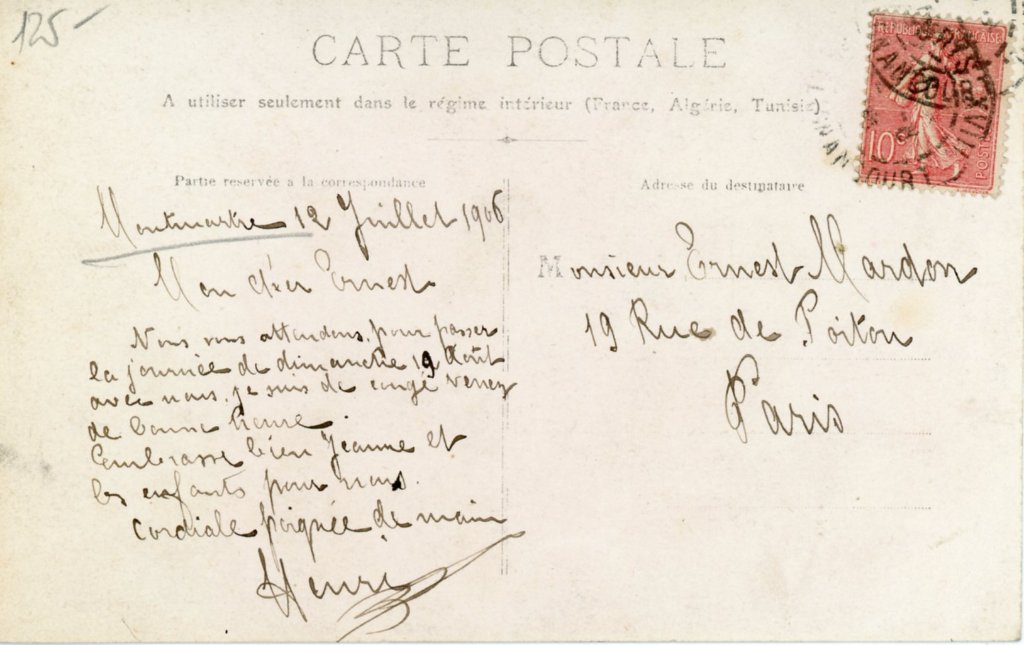 125-
CARTE POSTALE
A utiliser seulement dans le régime intérieur (France, Algérie, Tunisie)
RÉPUBLIQUE FRANÇAISE
10c
POSTES
Partie réservée à la correspondance
Adresse du destinataire
Montmartre 12 Juillet 1906
Mon cher Ernest
Nous vous attendons pour passer
la journée de dimanche 19 Août
avec nous. je suis de congé venez
de bonne heure
Embrasse bien Jeanne et
les enfants pour nous.
Cordiale poignée de main
Henri
Monsieur Ernest Mardon
19 Rue de Poitou
Paris